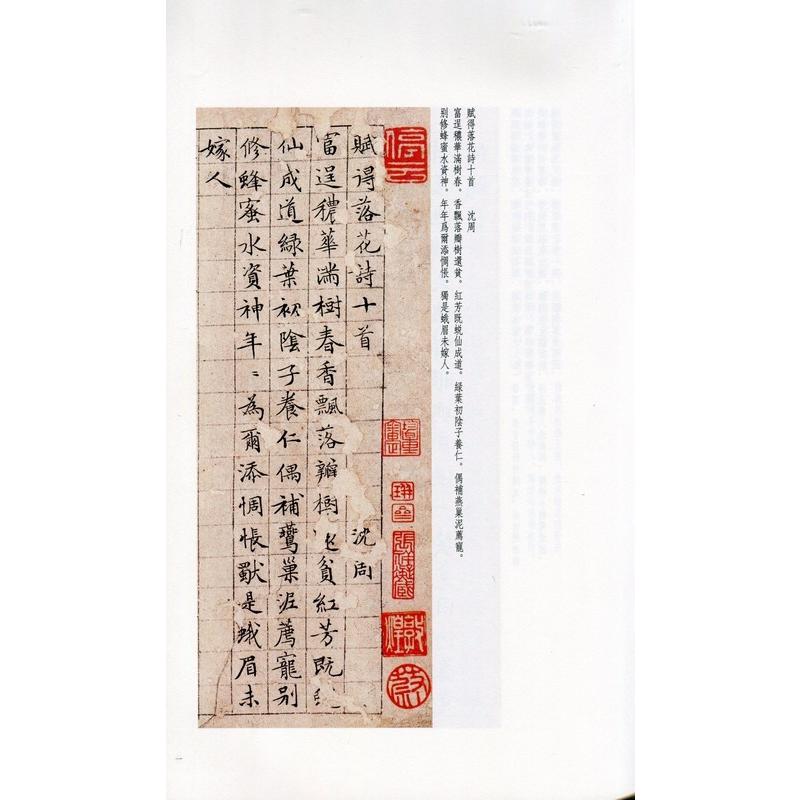 賦得落花詩十首 沈周
富逞穠華滿樹春。香飄落瓣樹還貧。紅芳既蛻仙成道。綠葉初陰子養仁。偶補燕巢泥薦寵。
別修蜂蜜水資神。年年爲爾添惆悵。獨是蛾眉未嫁人。
停雲
賦得落花詩十首 沈周
富逞穠華滿樹春香飄落瓣樹貧紅芳既
仙成道緑葉初陰子養仁偶補鷰巢泥薦寵別
修蜂蜜水資神年〻為爾添惆悵獨是蛾眉未
嫁人